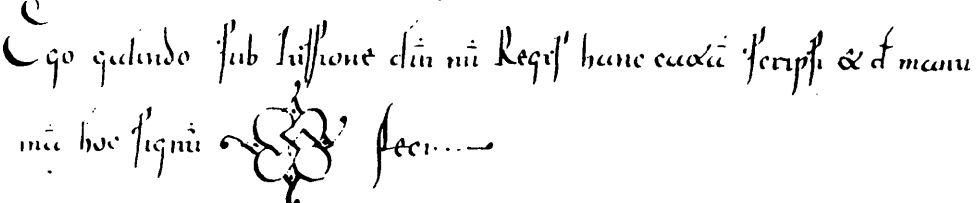 Ego galindo sub iussione dñi mi Regis hanc cartã scripsi & đ manu
mã hoc signũ feci...